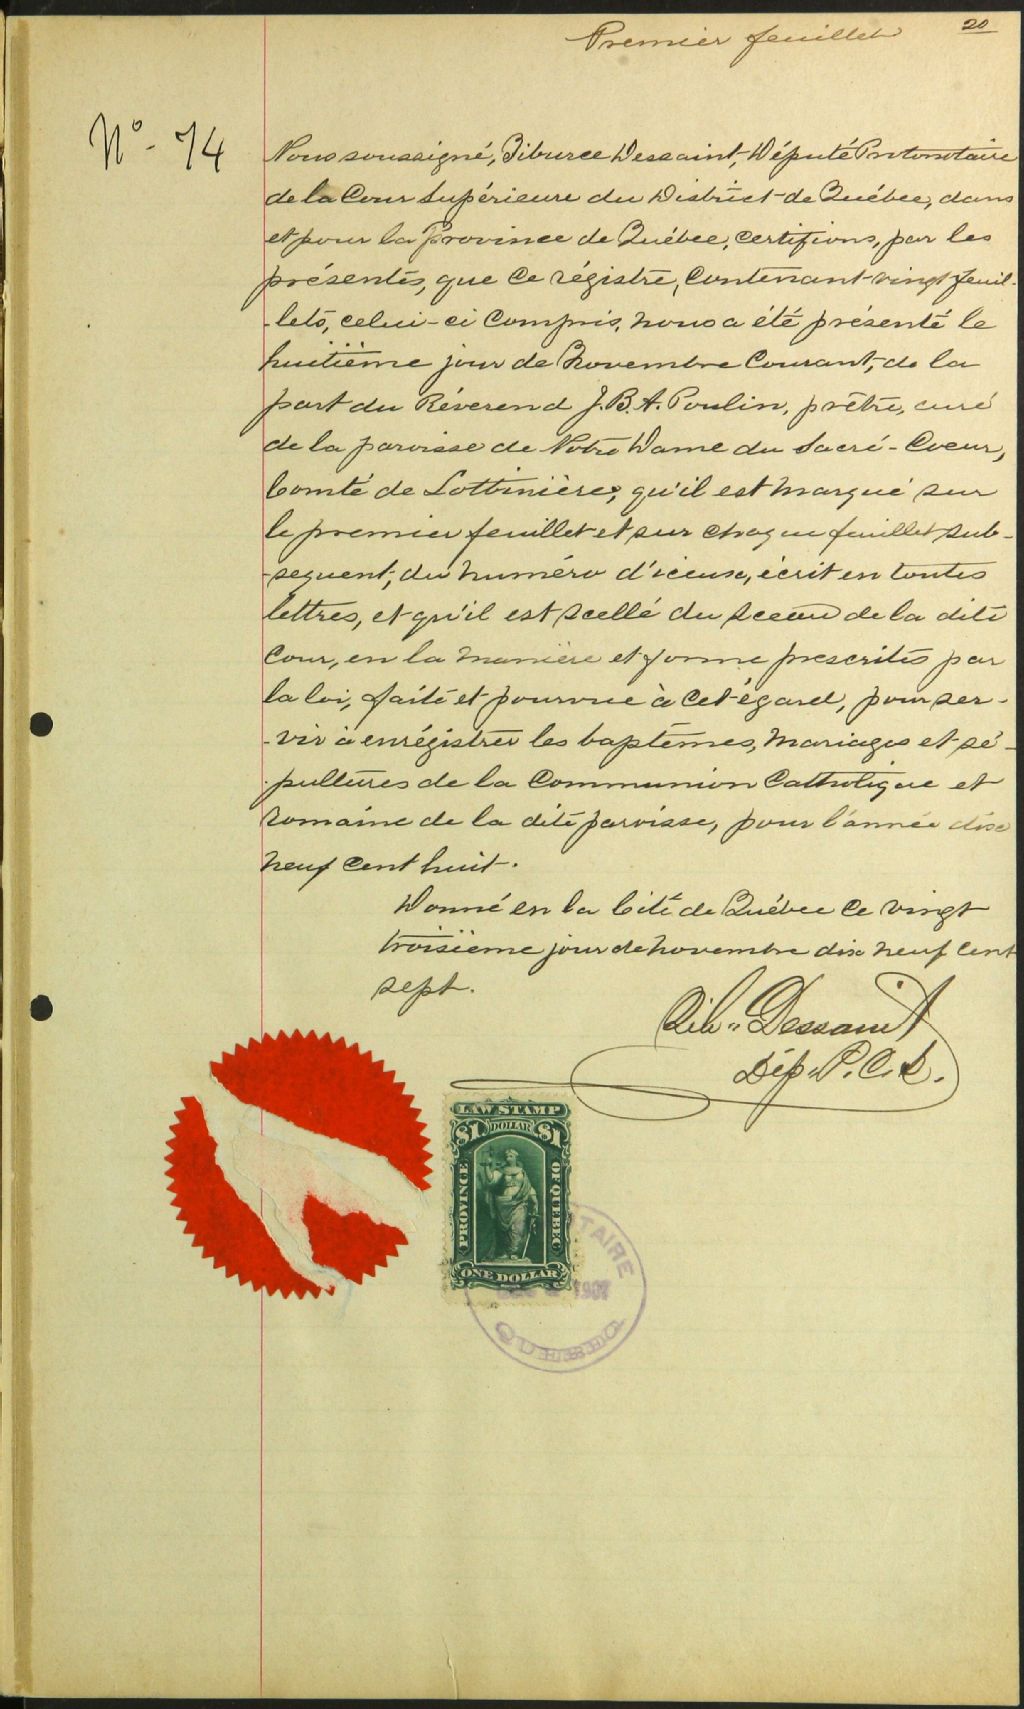 Premier feuillet
20
No - 74
Nous soussigné, Tiburce Dessaint, Député Protonotaire
de la Cour Supérieure du District de Québec, dans
et pour la Province de Québec, certifions, par les
présentes, que ce régistre, contenant vingt feuil-
-lets, celui-ci compris, nous a été présenté le
huitième jour de Novembre courant, de la
part du Réverend J.B.A. Poulin, prêtre, curé
de la paroisse de Notre Dame du Sacré-Coeur,
Comté de Lotbinière; qu'il est marqué sur
le premier feuillet et sur chaque feuillet sub-
-sequent, du numéro d'iceux, écrit en toutes
lettres, et qu'il est scellé du sceau de la dite
Cour, en la manière et forme prescrites par
la loi, faite et pourvue à cet égard, pour ser-
-vir à enrégistrer les baptêmes, mariages et sé-
-pultures de la Communion Catholique et
romaine de la dite paroisse, pour l'année dix
neuf cent huit.
Donné en la Cité de Québec ce vingt
troisième jour de novembre dix neuf cent
sept.
Tib. Dessaint
Dép. P.C.S.
LAW STAMP
$1 DOLLAR $1
PROVINCE
OF QUEBEC
ONE DOLLAR
TAIRE
1907
QUEBEC